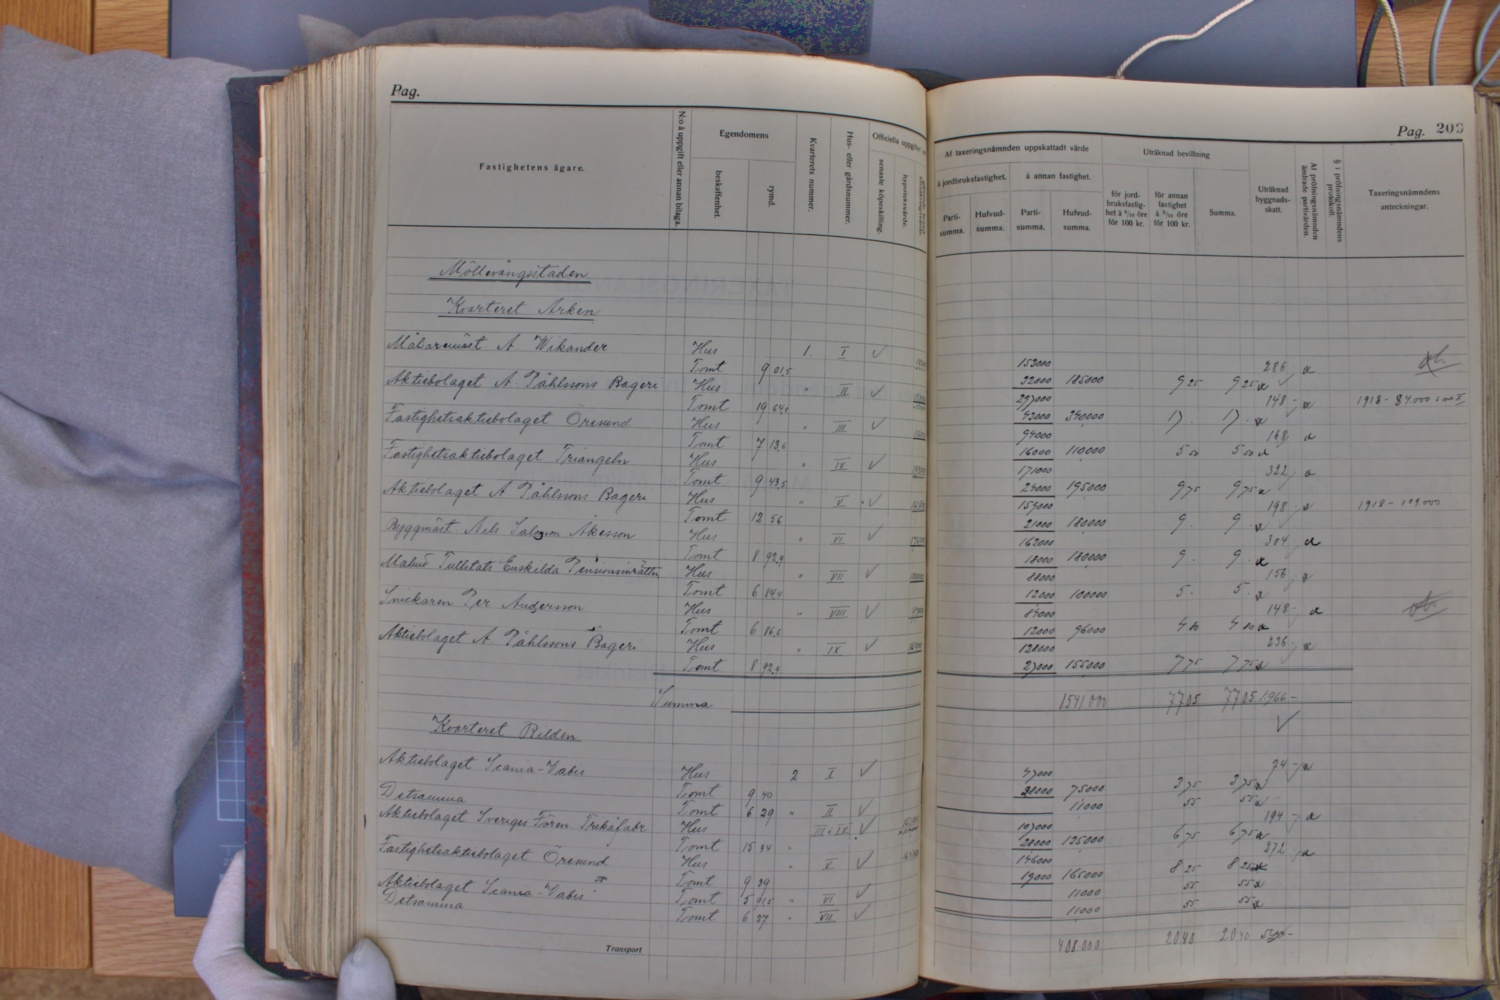 Pag.
Fastighetens ägare.
N:o å uppgift eller annan bilaga.
Egendomens
beskaffenhet.
rymd.
Kvarterets nummer.
Hus- eller gårdsnummer.
Officiella uppgifter
senaste köpeskilling.
hypoteksvärde.
Möllevångsstaden
Kvarteret Arken
Målaremäst A Wikander Hus 1. I
Tomt 9 01,5
Aktiebolaget A Påhlssons Bageri Hus " II
Tomt 19 64,0
Fastighetsaktiebolaget Öresund Hus " III
Tomt 7 13,0
Fastighetsaktiebolaget Triangeln Hus " IV
Tomt 9 43,5
Aktiebolaget A Påhlssons Bageri Hus " V
Tomt 12 56
Byggmäst Nils Salomon Åkesson Hus " VI
Tomt 8 92,9
Malmö Tullstats Enskilda Pensionsinrättn Hus " VII
Tomt 6 84,4
Snickaren Per Andersson Hus " VIII
Tomt 6 86,5
Aktiebolaget A Påhlssons Bageri Hus " IX
Tomt 8 92,9
Summa
Kvarteret Bilden
Aktiebolaget Scania-Vabis Hus 2 I
Tomt 9 40
Detsamma Tomt 6 29 " II
Aktiebolaget Sveriges Fören Trikåfabr Hus
Tomt 15 "
Fastighetsaktiebolaget Öresund Hus " V
Tomt 9 29
Aktiebolaget Scania-Vabis Tomt 5 91,5 " VI
Detsamma Tomt 6 27 " VII
Transport
Pag. 203
Af taxeringsnämnden uppskattadt värde
å jordbruksfastighet.
å annan fastighet.
Parti-summa.
Hufvud-summa.
Parti-summa.
Hufvud-summa.
Uträknad bevillning
för jord-bruksfastig-het à 6/10 öre för 100 kr.
för annan fastighet à 5/10 öre för 100 kr.
Summa.
Uträknad byggnads-skatt.
Af pröfningsnämnden ändrade partivärden.
§ i pröfningsnämndens protokoll.
Taxeringsnämndens anteckningar.
153000 286
32000 185000 9 25 9 25
297000 148 1918 - 84.000
43000 340000 17 . 17 .
94000 168
16000 110000 5 50 5 50
171000 322
24000 195000 9 75 9 75
159000 198 1918 - 109000
21000 180000 9 . 9 .
162000 304
18000 180000 9 . 9 .
88000 156
12000 100000 5 . 5 .
84000 148
12000 96000 4 80 4 80
128000 236
27000 155000 7 75 7 75
1541000 77 05 77 05 1966 -
47000 94
28000 75000 3 75 3 75
11000 55 55
107000 194
28000 135000 6 75 6 75
146000 272
19000 165000 8 25 8 25
11000 55 55
11000 55 55
408.000 20 40 20 40